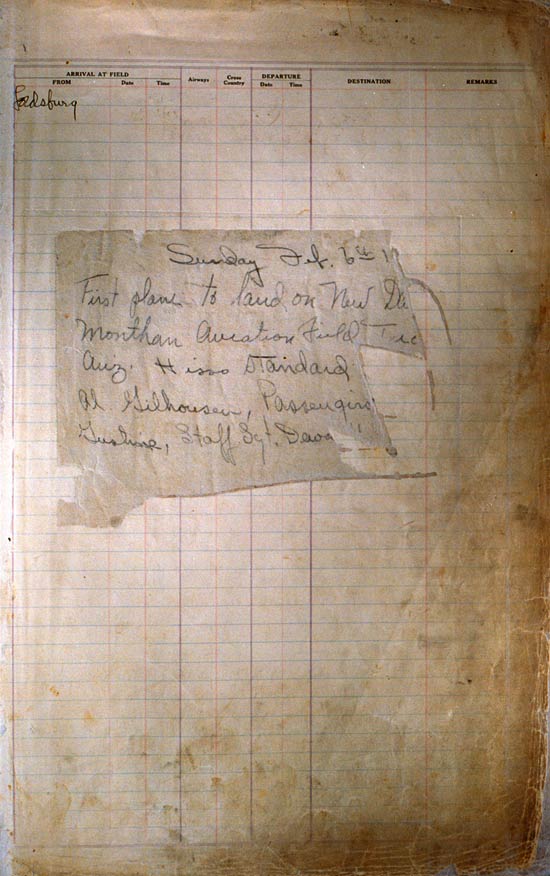 ARRIVAL AT FIELD
FROM Date Time Airways Cross Country
DEPARTURE
Date Time DESTINATION REMARKS
Lordsburg
Sunday Feb. 6th 1
First plane to land on New Da
Monthan Aviation Field Tuc
Ariz. Hisso Standard
Al. Gilhousen, Passengers
Staff Sgt. Dewa